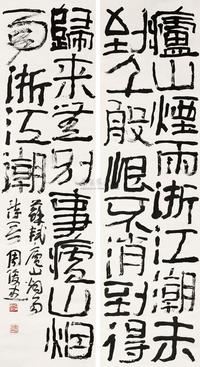 廬山煙雨浙江潮未
到千般恨不消到得
歸来無别事廬山烟
雨浙江潮
蘇軾廬山烟雨
周俊杰